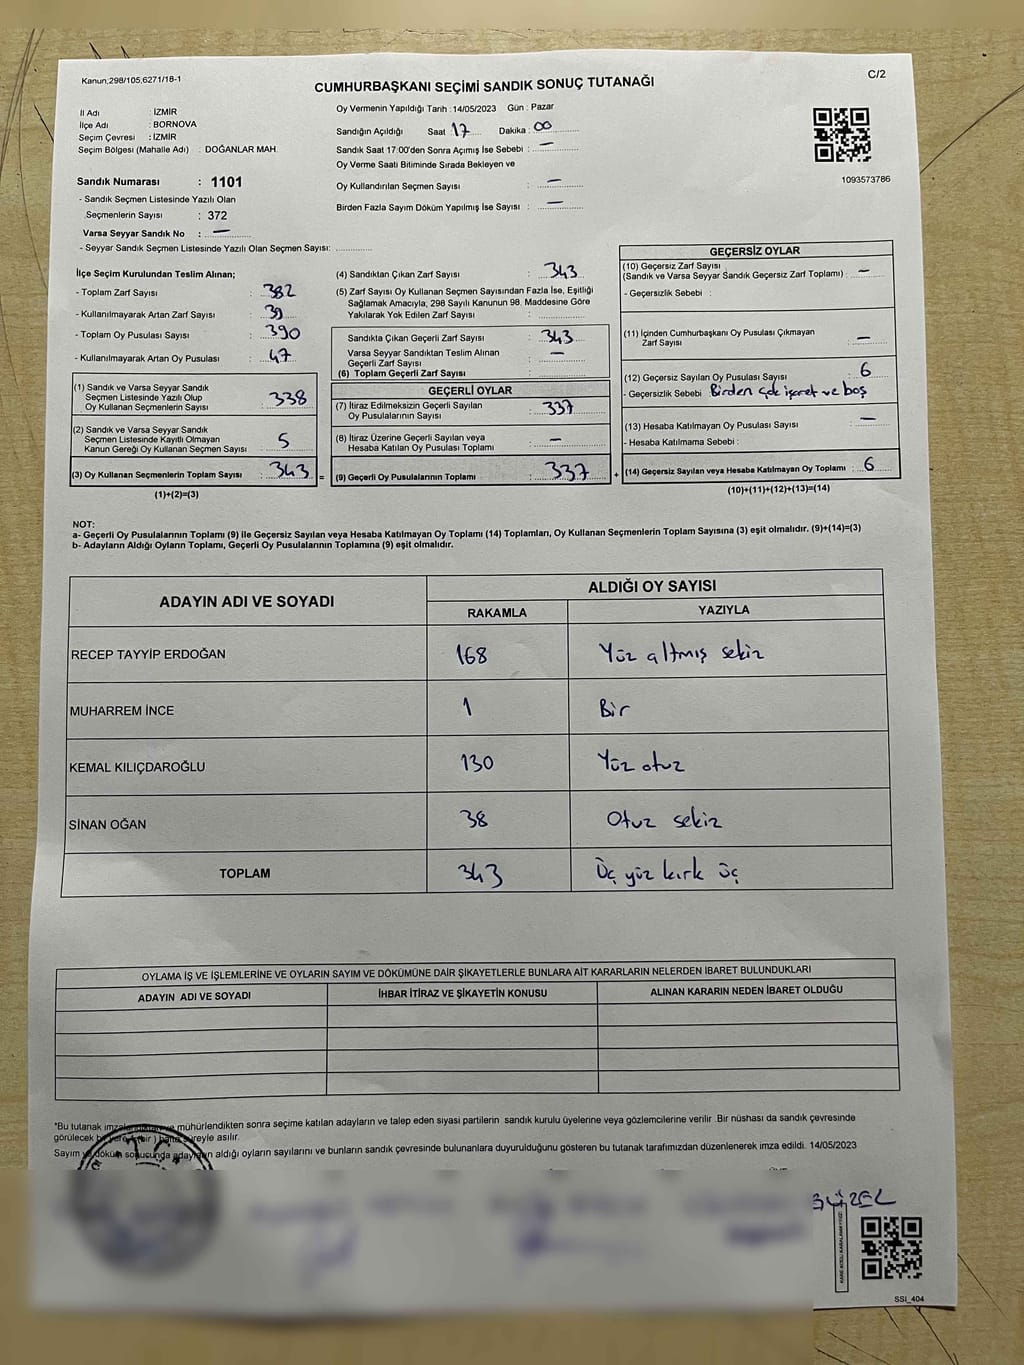 Kanun,298/105,6271/18-1
C/2
CUMHURBAŞKANI SEÇİMİ SANDIK SONUÇ TUTANAĞI
İl Adı : İZMİR
İlçe Adı : BORNOVA
Seçim Çevresi : İZMİR
Seçim Bölgesi (Mahalle Adı) : DOĞANLAR MAH.
Sandık Numarası : 1101
- Sandık Seçmen Listesinde Yazılı Olan
Seçmenlerin Sayısı : 372
Varsa Seyyar Sandık No : —
- Seyyar Sandık Seçmen Listesinde Yazılı Olan Seçmen Sayısı:
Oy Vermenin Yapıldığı Tarih : 14/05/2023 Gün : Pazar
Sandığın Açıldığı Saat : 17 Dakika : 00
Sandık Saat 17:00'den Sonra Açımış İse Sebebi : —
Oy Verme Saati Bitiminde Sırada Bekleyen ve
Oy Kullandırılan Seçmen Sayısı : —
Birden Fazla Sayım Döküm Yapılmış İse Sayısı : —
1093573786
İlçe Seçim Kurulundan Teslim Alınan;
- Toplam Zarf Sayısı : 382
- Kullanılmayarak Artan Zarf Sayısı : 39
- Toplam Oy Pusulası Sayısı : 390
- Kullanılmayarak Artan Oy Pusulası : 47
(1) Sandık ve Varsa Seyyar Sandık
Seçmen Listesinde Yazılı Olup
Oy Kullanan Seçmenlerin Sayısı : 338
(2) Sandık ve Varsa Seyyar Sandık
Seçmen Listesinde Kayıtlı Olmayan
Kanun Gereği Oy Kullanan Seçmen Sayısı : 5
(3) Oy Kullanan Seçmenlerin Toplam Sayısı : 343 =
(1)+(2)=(3)
(4) Sandıktan Çıkan Zarf Sayısı : 343
(5) Zarf Sayısı Oy Kullanan Seçmen Sayısından Fazla İse, Eşitliği
Sağlamak Amacıyla, 298 Sayılı Kanunun 98. Maddesine Göre
Yakılarak Yok Edilen Zarf Sayısı :
Sandıkta Çıkan Geçerli Zarf Sayısı : 343
Varsa Seyyar Sandıktan Teslim Alınan
Geçerli Zarf Sayısı : —
(6) Toplam Geçerli Zarf Sayısı :
GEÇERLİ OYLAR
(7) İtiraz Edilmeksizin Geçerli Sayılan
Oy Pusulalarının Sayısı : 337
(8) İtiraz Üzerine Geçerli Sayılan veya
Hesaba Katılan Oy Pusulası Toplamı : —
(9) Geçerli Oy Pusulalarının Toplamı : 337 +
GEÇERSİZ OYLAR
(10) Geçersiz Zarf Sayısı
(Sandık ve Varsa Seyyar Sandık Geçersiz Zarf Toplamı) : —
- Geçersizlik Sebebi :
(11) İçinden Cumhurbaşkanı Oy Pusulası Çıkmayan
Zarf Sayısı : —
(12) Geçersiz Sayılan Oy Pusulası Sayısı : 6
- Geçersizlik Sebebi : Birden çok işaret ve boş
(13) Hesaba Katılmayan Oy Pusulası Sayısı : —
- Hesaba Katılmama Sebebi :
(14) Geçersiz Sayılan veya Hesaba Katılmayan Oy Toplamı : 6
(10)+(11)+(12)+(13)=(14)
NOT:
a- Geçerli Oy Pusulalarının Toplamı (9) ile Geçersiz Sayılan veya Hesaba Katılmayan Oy Toplamı (14) Toplamları, Oy Kullanan Seçmenlerin Toplam Sayısına (3) eşit olmalıdır. (9)+(14)=(3)
b- Adayların Aldığı Oyların Toplamı, Geçerli Oy Pusulalarının Toplamına (9) eşit olmalıdır.
ADAYIN ADI VE SOYADI
ALDIĞI OY SAYISI
RAKAMLA YAZIYLA
RECEP TAYYİP ERDOĞAN 168 Yüz altmış sekiz
MUHARREM İNCE 1 Bir
KEMAL KILIÇDAROĞLU 130 Yüz otuz
SİNAN OĞAN 38 Otuz sekiz
TOPLAM 343 Üç yüz kırk üç
OYLAMA İŞ VE İŞLEMLERİNE VE OYLARIN SAYIM VE DÖKÜMÜNE DAİR ŞİKAYETLERLE BUNLARA AİT KARARLARIN NELERDEN İBARET BULUNDUKLARI
ADAYIN ADI VE SOYADI İHBAR İTİRAZ VE ŞİKAYETİN KONUSU ALINAN KARARIN NEDEN İBARET OLDUĞU
*Bu tutanak mühürlendikten sonra seçime katılan adayların ve talep eden siyasi partilerin sandık kurulu üyelerine veya gözlemcilerine verilir. Bir nüshası da sandık çevresinde
görülecek süreyle asılır.
Sayım döküm sonucunda aldığı oyların sayılarını ve bunların sandık çevresinde bulunanlara duyurulduğunu gösteren bu tutanak tarafımızdan düzenlenerek imza edildi. 14/05/2023
SSİ_404